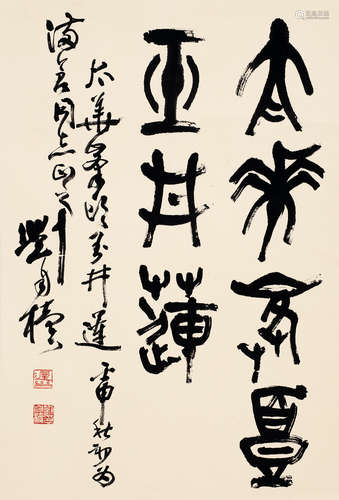 太華峯頭
玉井蓮
太華峯頭玉井蓮 申秋初為
同志正之
劉自櫝